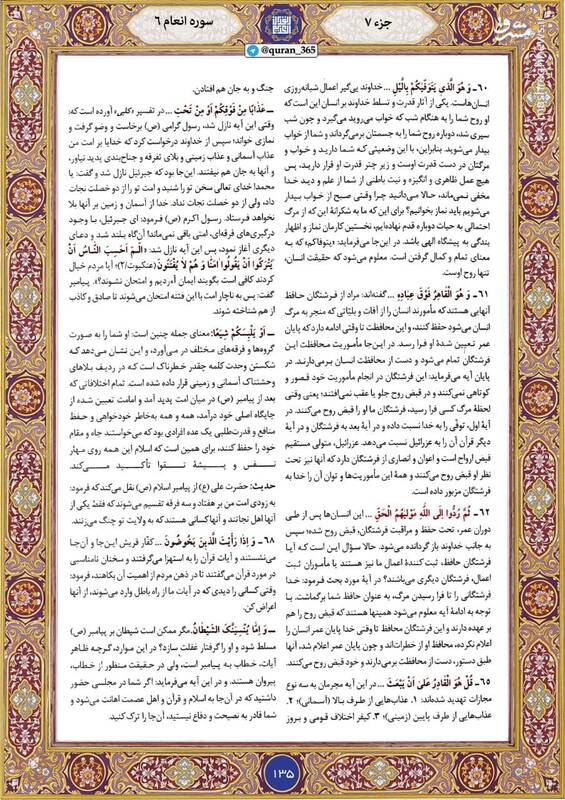 جزء ۷
سوره انعام ۶
@quran_365
مشرق
۶۰- وَ هُوَ الَّذِي يَتَوَفَّيكُمْ بِالَّيْلِ ... خداوند پی‌گیر اعمال شبانه‌روزی
انسان‌هاست. یکی از آثار قدرت و تسلط خداوند بر انسان این است که
او روح شما را به هنگام شب که خواب می‌روید می‌گیرد و چون شب
سپری شد، دوباره روح شما را به جسمتان برمی‌گرداند و شما از خواب
بیدار می‌شوید. بنابراین، با این وضعیتی که شما دارید و خواب و
مرگتان در دست قدرت اوست و زیر چتر قدرت او قرار دارید، پس
هیچ عمل ظاهری و انگیزه و نیت باطنی از شما از علم و دید خدا
مخفی نمی‌ماند، حالا می‌دانید چرا وقتی صبح از خواب بیدار
می‌شویم باید نماز بخوانیم؟ برای این که ما به شکرانهٔ این که از مرگ
احتمالی به حیات دوباره قدم نهاده‌ایم، نخستین کارمان نماز و اظهار
بندگی به پیشگاه الهی باشد. در این‌جا می‌فرماید: «یتوفاکم» که به
معنای تمام و کمال گرفتن است. معلوم می‌شود که حقیقت انسان،
تنها روح اوست.
۶۱- وَ هُوَ الْقَاهِرُ فَوْقَ عِبَادِهِ ... گفته‌اند: مراد از فرشتگان حافظ
آنهایی هستند که مأمورند انسان را از آفات و بلیّاتی که منجر به مرگ
انسان می‌شود حفظ کنند، و این محافظت تا وقتی ادامه دارد که پایان
عمر تعیین شدهٔ او فرا رسد. در این‌جا مأموریت محافظت این
فرشتگان تمام می‌شود و دست از محافظت انسان برمی‌دارند. در
پایان آیه می‌فرماید: این فرشتگان در انجام مأموریت خود قصور و
کوتاهی نمی‌کنند و در قبض روح جلو یا عقب نمی‌افتند؛ یعنی وقتی
لحظهٔ مرگ کسی فرا رسید، فرشتگان ما او را قبض روح می‌کنند. در
آیهٔ اول، توفّی را به خدا نسبت داده و در آیهٔ بعد به فرشتگان و در آیهٔ
دیگر قرآن آن را به عزرائیل نسبت می‌دهد. عزرائیل، متولی مستقیم
قبض ارواح است و اعوان و انصاری از فرشتگان دارد که آنها نیز تحت
نظر او قبض روح می‌کنند و همهٔ این مأموریت‌ها و توان آن را خدا به
فرشتگان مزبور داده است.
۶۲- ثُمَّ رُدُّوا إِلَى اللَّهِ مَوْلَيهُمُ الْحَقِّ ... این انسان‌ها پس از طی
دوران عمر، تحت حفظ و مراقبت فرشتگان، قبض روح شده؛ سپس
به جانب خداوند باز گردانده می‌شود. حالا سؤال این است که آیا
فرشتگان حافظ، ثبت کنندهٔ اعمال ما نیز هستند یا مأموران ثبت
اعمال، فرشتگان دیگری می‌باشند؟ در آیهٔ مورد بحث فرمود: خدا
فرشتگانی را تا فرا رسیدن مرگ، به عنوان حافظ شما برگماشت. با
توجه به ادامهٔ آیه معلوم می‌شود همینها هستند که قبض روح را هم
بر عهده دارند و این فرشتگان محافظ تا وقتی خدا پایان عمر انسان را
اعلام نکرده، محافظ او از خطرات‌اند و چون پایان عمر اعلام شد، آنها
طبق دستور، دست از محافظت برمی‌دارند و خود قبض روح می‌کنند.
۶۵- قُلْ هُوَ الْقَادِرُ عَلَى أَنْ يَبْعَثَ ... در این آیه مجرمان به سه نوع
مجازات تهدید شده‌اند: ۱. عذاب‌هایی از طرف بالا (آسمانی)؛ ۲.
عذاب‌هایی از طرف پایین (زمینی)؛ ۳. کیفر اختلاف قومی و بروز
جنگ و به جان هم افتادن.
... عَذَابًا مِنْ فَوْقِكُمْ أَوْ مِنْ تَحْتِ ... در تفسیر «کلبی» آورده است که:
وقتی این آیه نازل شد، رسول گرامی (ص) برخاست و وضو گرفت و
نمازی خواند؛ سپس از خداوند درخواست کرد که خدایا بر امت من
عذاب آسمانی و عذاب زمینی و بلای تفرقه و جناح‌بندی پدید نیاور،
و آنها به جان هم نیفتند. این‌جا بود که جبرئیل نازل شد و گفت: یا
محمد! خدای تعالی سخن تو را شنید و امت تو را از دو خصلت نجات
داد، ولی از دو خصلت نجات نداد. خدا از آسمان و زمین بر آنها بلا
نخواهد فرستاد. رسول اکرم (ص) فرمود: ای جبرئیل، با وجود
درگیری‌های فرقه‌ای، امتی باقی نمی‌ماند! آن‌گاه بلند شد و دعای
دیگری آغاز نمود، پس این آیه نازل شد: «الم أَحَسِبَ النَّاسُ أَنْ
يُتْرَكُوا أَنْ يَقُولُوا آمَنَّا وَ هُمْ لَا يُفْتَنُونَ (عنکبوت/۲)؛ آیا مردم خیال
کردند کافی است بگویند ایمان آوردیم و امتحان نشوند؟». پیامبر
گفت: پس به ناچار امت با این فتنه امتحان می‌شوند تا صادق و کاذب
از هم شناخته شوند.
... أَوْ يَلْبِسَكُمْ شِيَعًا: معنای جمله چنین است: او شما را به صورت
گروه‌ها و فرقه‌های مختلف در می‌آورد، و این نشان می‌دهد که
شکستن وحدت کلمه چقدر خطرناک است که در ردیف بلاهای
وحشتناک آسمانی و زمینی قرار داده شده است. تمام اختلافاتی که
بعد از پیامبر (ص) در میان امت پدید آمد و امامت تعیین شده از
جایگاه اصلی خود درآمد، همه و همه به‌خاطر خودخواهی و حفظ
منافع و قدرت‌طلبی یک عده افرادی بود که می‌خواستند جاه و مقام
خود را حفظ کنند، برای همین است که اسلام این همه روی مهار
نفس و پیشهٔ تقوا تأکید می‌کند.
حدیث: حضرت علی (ع) از پیامبر اسلام (ص) نقل می‌کند که فرمود:
به زودی امت من بر هفتاد و سه فرقه تقسیم می‌شوند که فقط یکی از
آنها اهل نجاتند و آنها کسانی هستند که به ولایت تو چنگ می‌زنند.
۶۸- وَ إِذَا رَأَيْتَ الَّذِينَ يَخُوضُونَ ... کفّار قریش این‌جا و آن‌جا
می‌نشستند و آیات قرآن را به استهزا می‌گرفتند و سخنان نامناسبی
در مورد قرآن می‌گفتند تا در ذهن مردم از اهمیت آن بکاهند، فرمود:
وقتی کسانی را دیدی که در آیات ما از راه باطل وارد می‌شوند، از آنها
اعراض کن.
... وَ إِمَّا يُنْسِيَنَّكَ الشَّيْطَانُ، مگر ممکن است شیطان بر پیامبر (ص)
مسلط شود و او را گرفتار غفلت سازد؟ در این موارد، گرچه ظاهر
آیات، خطاب به پیامبر است، ولی در حقیقت منظور از خطاب،
پیروان هستند. و در این آیه می‌فرماید: اگر شما در مجلسی حضور
داشتید که در آن‌جا به اسلام و قرآن و اهل عصمت اهانت می‌شود و
شما قادر به نصیحت و دفاع نیستید، آن‌جا را ترک کنید.
۱۳۵